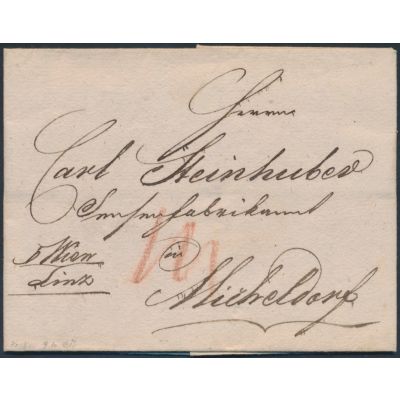 Herrn
Carl Steinhuber
Sensenfabrikant
in
Micheldorf
Wien
Linz